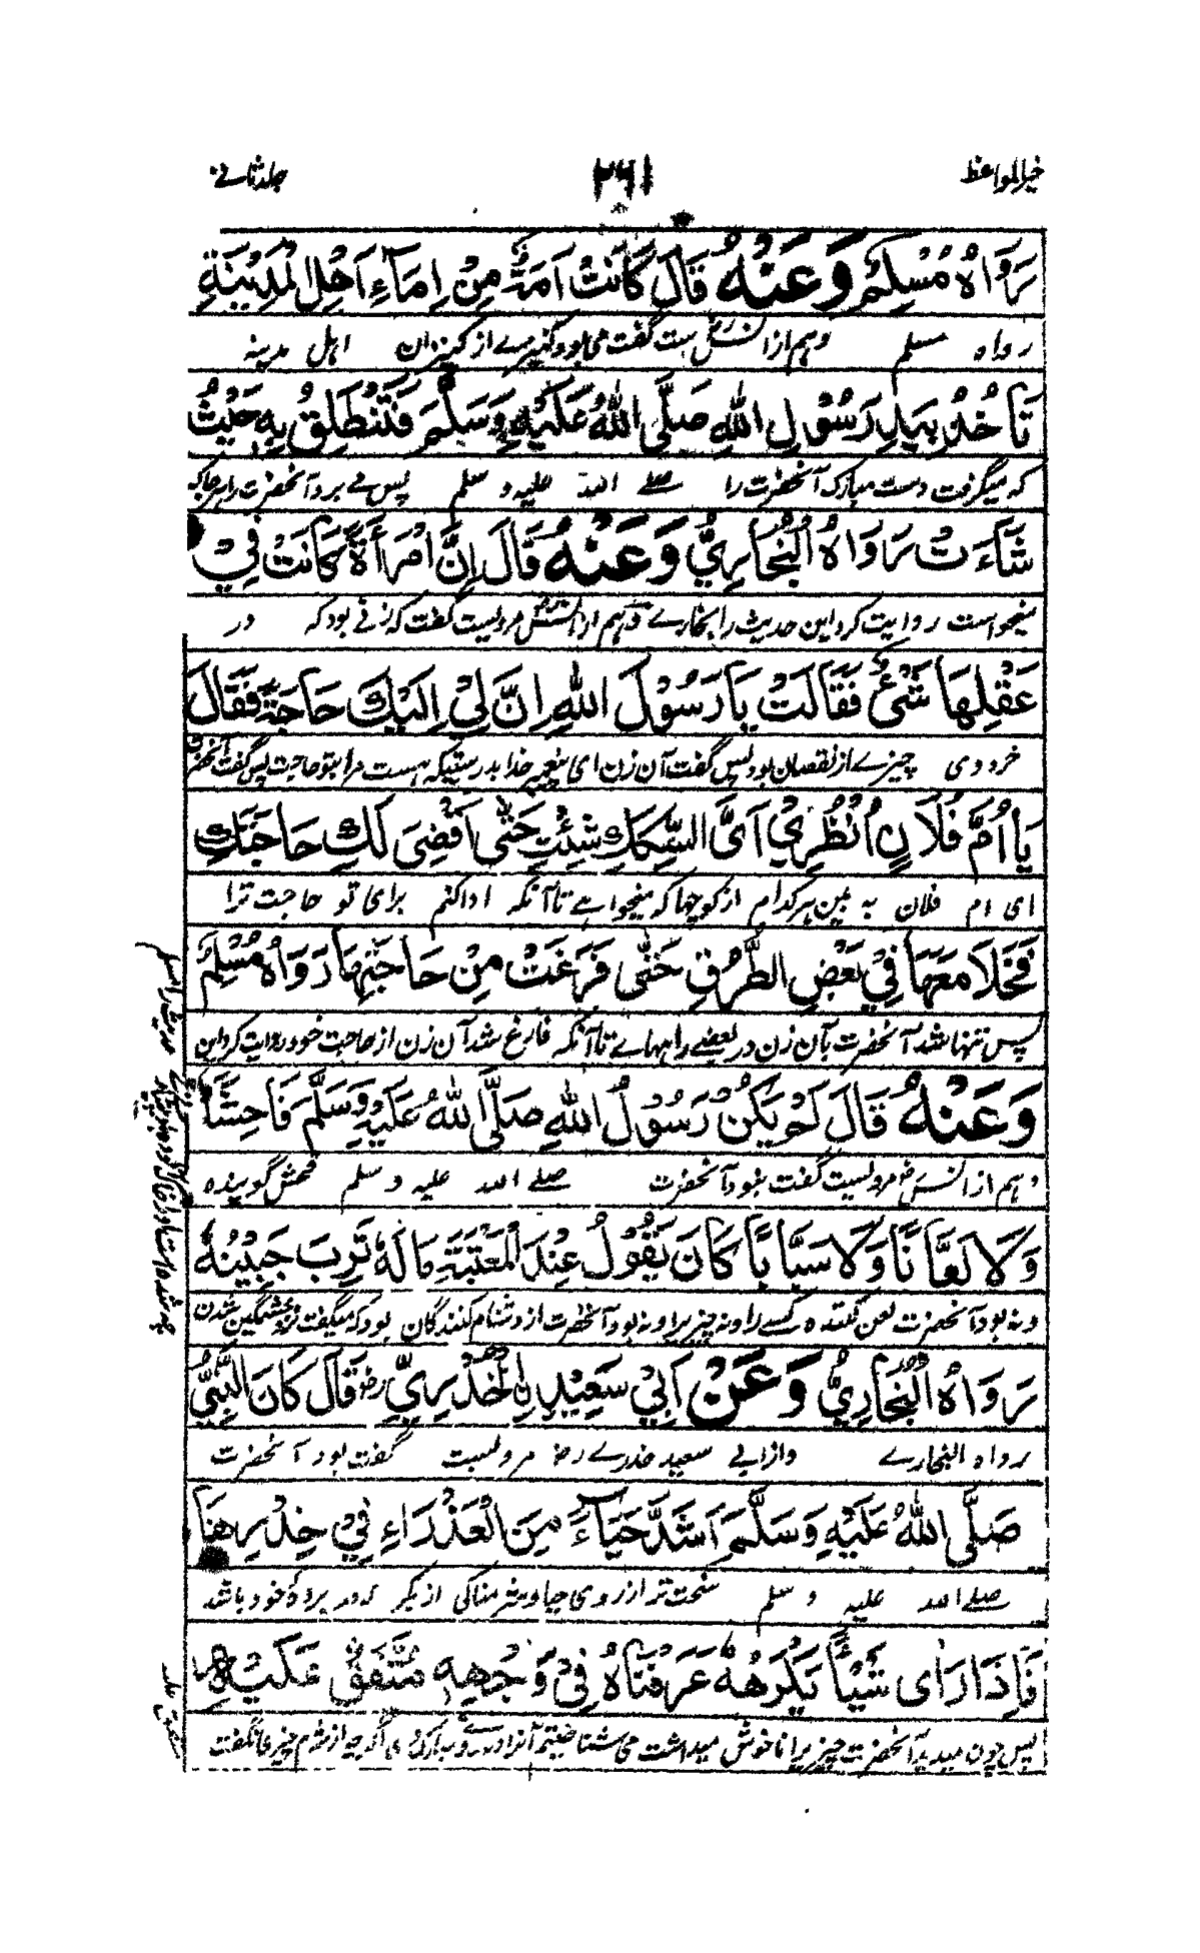 خیرالمواعظ
۲۶۱
جلد ثانے
رَوَاهُ مُسْلِمٌ وَعَنْهُ قَالَ كَانَتْ اَمَةٌ مِنْ اِمَاۤءِ اَهْلِ الْمَدِيْنَةِ
رواه مسلم وہم از انس رض ست گفت می بود کنیزے از کنیزان اہل مدینہ
تَأْخُذُ بِيَدِ رَسُوْلِ اللهِ صَلَّى اللهُ عَلَيْهِ وَسَلَّمَ فَتَنْطَلِقُ بِهٖ حَيْثُ
کہ میگرفت دست مبارک آنحضرت را صلے اللہ علیہ و سلم پس مے برد آنحضرت را ہر جا کہ
شَاۤءَتْ رَوَاهُ الْبُخَارِيُّ وَعَنْهُ قَالَ اِنَّ امْرَأَةً كَانَتْ فِيْ
میخواست روایت کرد این حدیث را بخارے وہم از انس رض مرویست گفت کہ زنے بود کہ در
عَقْلِهَا شَيْءٌ فَقَالَتْ يَا رَسُوْلَ اللهِ اِنَّ لِيْ اِلَيْكَ حَاجَةً فَقَالَ
خرد وی چیزے از نقصان بود پس گفت آن زن ای پیغمبر خدا بدرستیکہ ہست مرا بتو حاجت پس گفت آنحضرت
يَا اُمَّ فُلَانٍ اُنْظُرِيْ اَيَّ السِّكَكِ شِئْتِ حَتّٰى اَقْضِيَ لَكِ حَاجَتَكِ
ای ام فلان بہ بین ہر کدام از کوچہا کہ میخواہے تا آنکہ ادا کنم برای تو حاجت ترا
فَخَلَا مَعَهَا فِيْ بَعْضِ الطُّرُقِ حَتّٰى فَرَغَتْ مِنْ حَاجَتِهَا رَوَاهُ مُسْلِمٌ
پس تنہا شد آنحضرت بآن زن در بعضے راہہاے تا آنکہ فارغ شد آن زن از حاجت خود روایت کرد این
وَعَنْهُ قَالَ لَمْ يَكُنْ رَسُوْلُ اللهِ صَلَّى اللهُ عَلَيْهِ وَسَلَّمَ فَاحِشًا
وہم از انس رض مرویست گفت نبود آنحضرت صلے اللہ علیہ و سلم فحش گویندہ
وَلَا لَعَّانًا وَلَا سَبَّابًا كَانَ يَقُوْلُ عِنْدَ الْمَعْتَبَةِ مَا لَهٗ تَرِبَ جَبِيْنُهٗ
ونہ بود آنحضرت لعن کنندہ کسے را و نہ چیزیرا و نہ بود آنحضرت از دشنام کنندگان بود کہ میگفت نزد خشمگین شدن
رَوَاهُ الْبُخَارِيُّ وَعَنْ اَبِيْ سَعِيْدٍ الْخُدْرِيِّ رض قَالَ كَانَ النَّبِيُّ
رواه البخارے و از ابی سعید خدرے رض مرویست گفت بود آنحضرت
صَلَّى اللهُ عَلَيْهِ وَسَلَّمَ اَشَدَّ حَيَاۤءً مِنَ الْعَذْرَاءِ فِيْ خِدْرِهَا
صلے اللہ علیہ و سلم سخت تر از روی حیا و شرمناکی از بکر کہ در پردۂ خود باشد
فَاِذَا رَاٰى شَيْئًا يَكْرَهُهٗ عَرَفْنَاهُ فِيْ وَجْهِهٖ مُتَّفَقٌ عَلَيْهِ
پس چون میدید آنحضرت چیزیرا ناخوش میداشت می شناختیم آنرا در روے مبارک وی اگرچہ از شرم چیزے نگفت